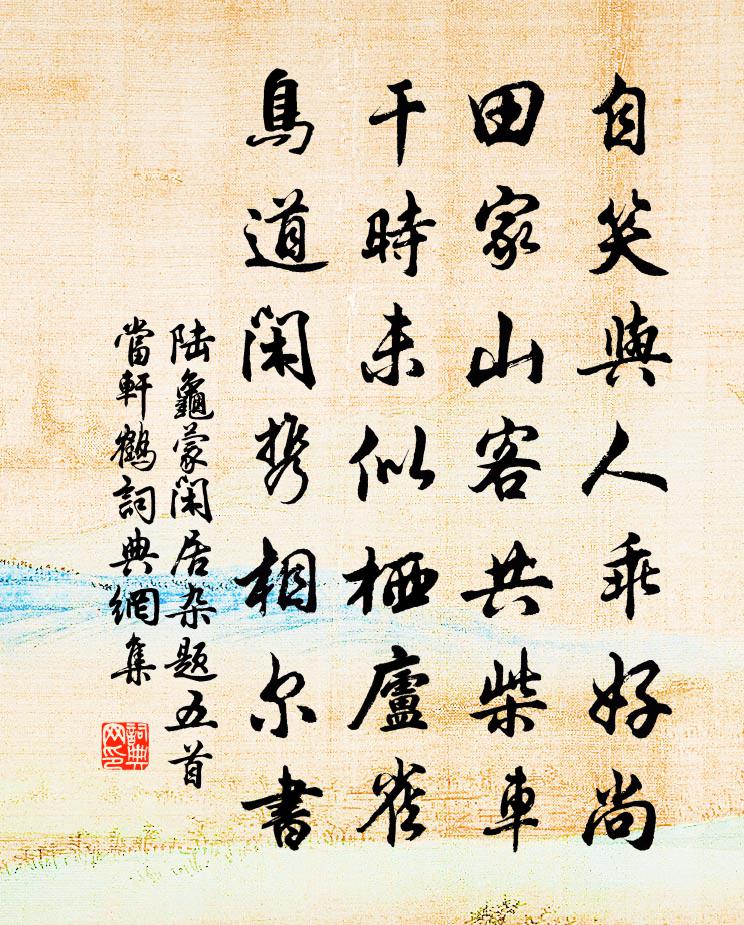 自笑與人乖好尚
田家山客共柴車
干時未似栖廬雀
鳥道閑携相尔書
陆龜蒙閑居杂題五首
當軒鶴詞典網集
詞典网印